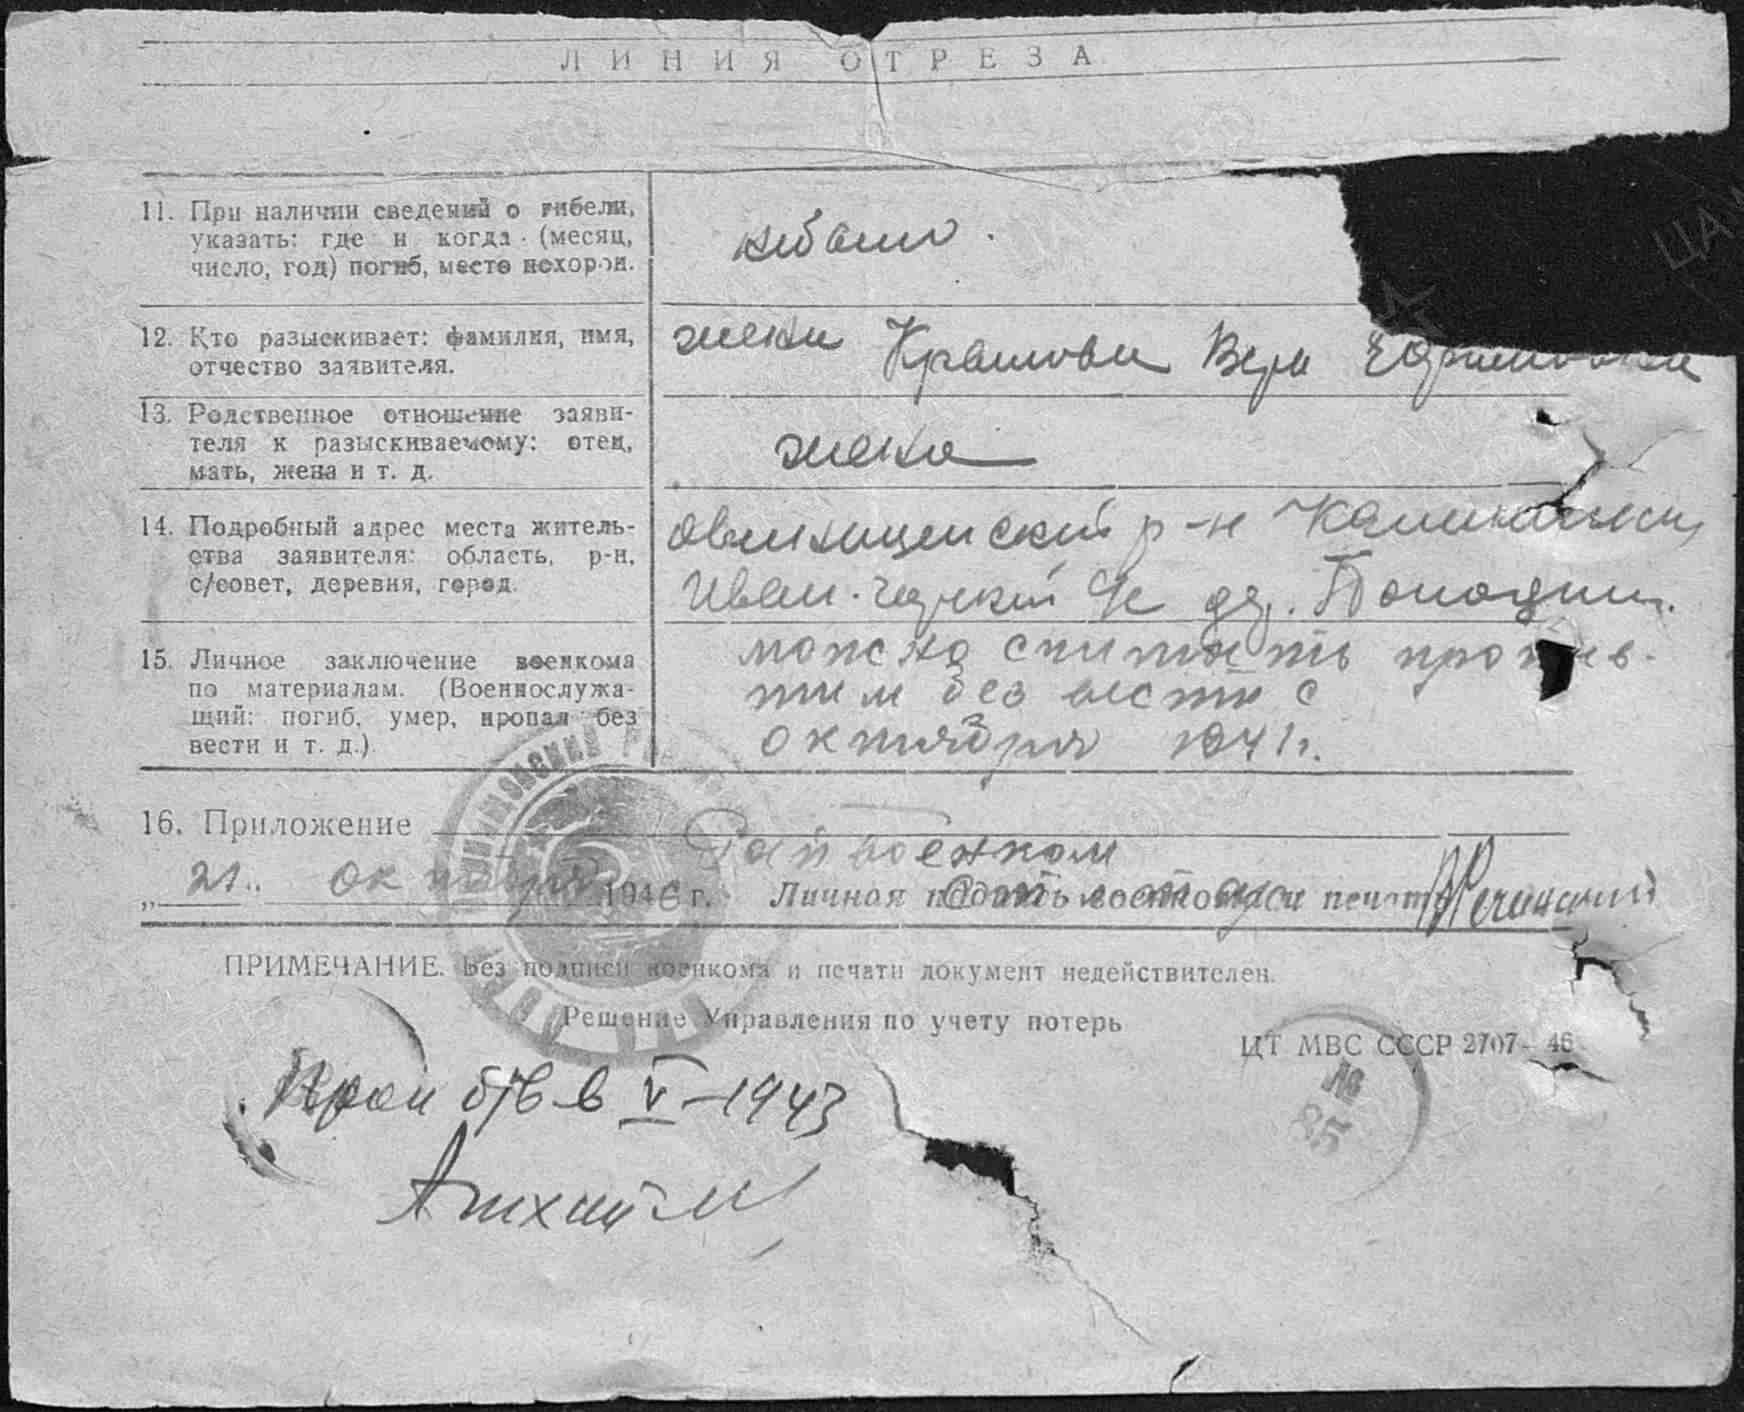 ЛИНИЯ ОТРЕЗА
11. При наличии сведений о гибели,
указать: где и когда (месяц,
число, год) погиб, место похорон.
не было.
12. Кто разыскивает: фамилия, имя,
отчество заявителя.
жена Крашова Вера
13. Родственное отношение заяви-
теля к разыскиваемому: отец,
мать, жена и т. д.
жена
14. Подробный адрес места житель-
ства заявителя: область, р-н,
с/совет, деревня, город.
Овинищенский р-н Калининск
Иван. с/с дер.
15. Личное заключение военкома
по материалам. (Военнослужа-
щий: погиб, умер, пропал без
вести и т. д.)
можно считать пропав-
шим без вести с
октября 1941 г.
16. Приложение
Райвоенком
„21" октября 1946 г. Личная подпись военкома и печать
ПРИМЕЧАНИЕ. Без подписи военкома и печати документ недействителен.
Решение Управления по учету потерь
ЦТ МВС СССР 2707—46
Проп б/в в V-1943